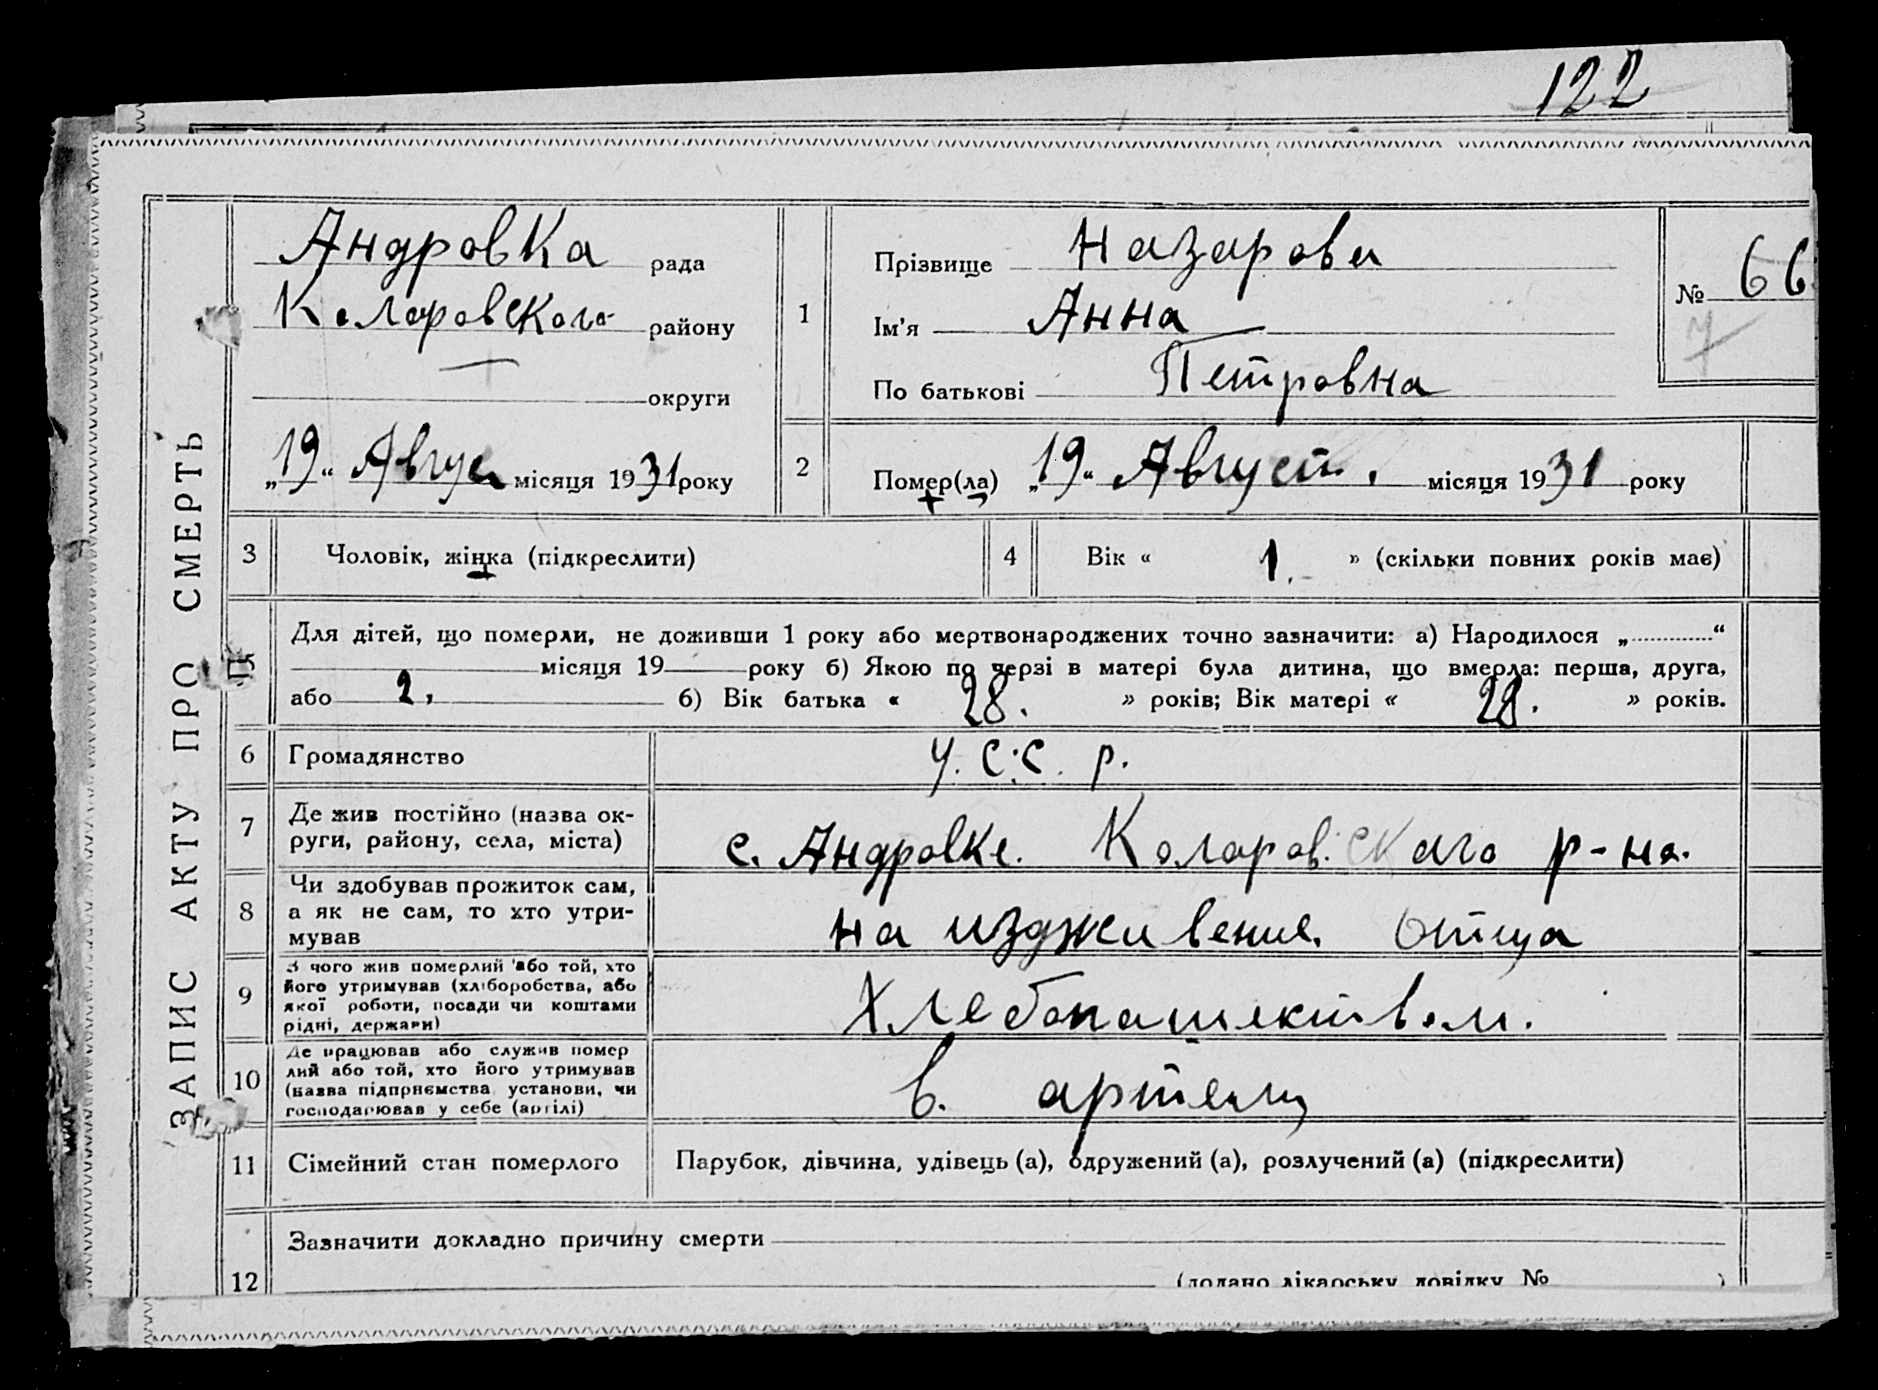 122
ЗАПИС АКТУ ПРО СМЕРТЬ
Андровка рада
Коларовского району
округи
„19“ Август місяця 1931 року
1
Прізвище Назарова
Ім'я Анна
По батькові Петровна
№ 66
7
2
Помер(ла) „19“ Август. місяця 1931 року
3 Чоловік, жінка (підкреслити)
4 Вік « 1. » (скільки повних років має)
Для дітей, що померли, не доживши 1 року або мертвонароджених точно зазначити: а) Народилося „ “
місяця 19 року б) Якою по черзі в матері була дитина, що вмерла: перша, друга,
або 2. б) Вік батька « 28. » років; Вік матері « 28. » років.
6 Громадянство У.С.С.Р.
7 Де жив постійно (назва ок-
руги, району, села, міста)
с. Андровке. Коларов.скаго р-на.
8 Чи здобував прожиток сам,
а як не сам, то хто утри-
мував
на изджевение. Отца
9 З чого жив померлий або той, хто
його утримував (хліборобства, або
якої роботи, посади чи коштами
рідні, держави)
Хлебопашеством.
10 Де працював або служив помер
лий або той, хто його утримував
(назва підприємства, установи, чи
господарював у себе (артілі)
в. артели
11 Сімейний стан померлого Парубок, дівчина, удівець (а), одружений (а), розлучений (а) (підкреслити)
12 Зазначити докладно причину смерти
(додано лікарську довідку № )